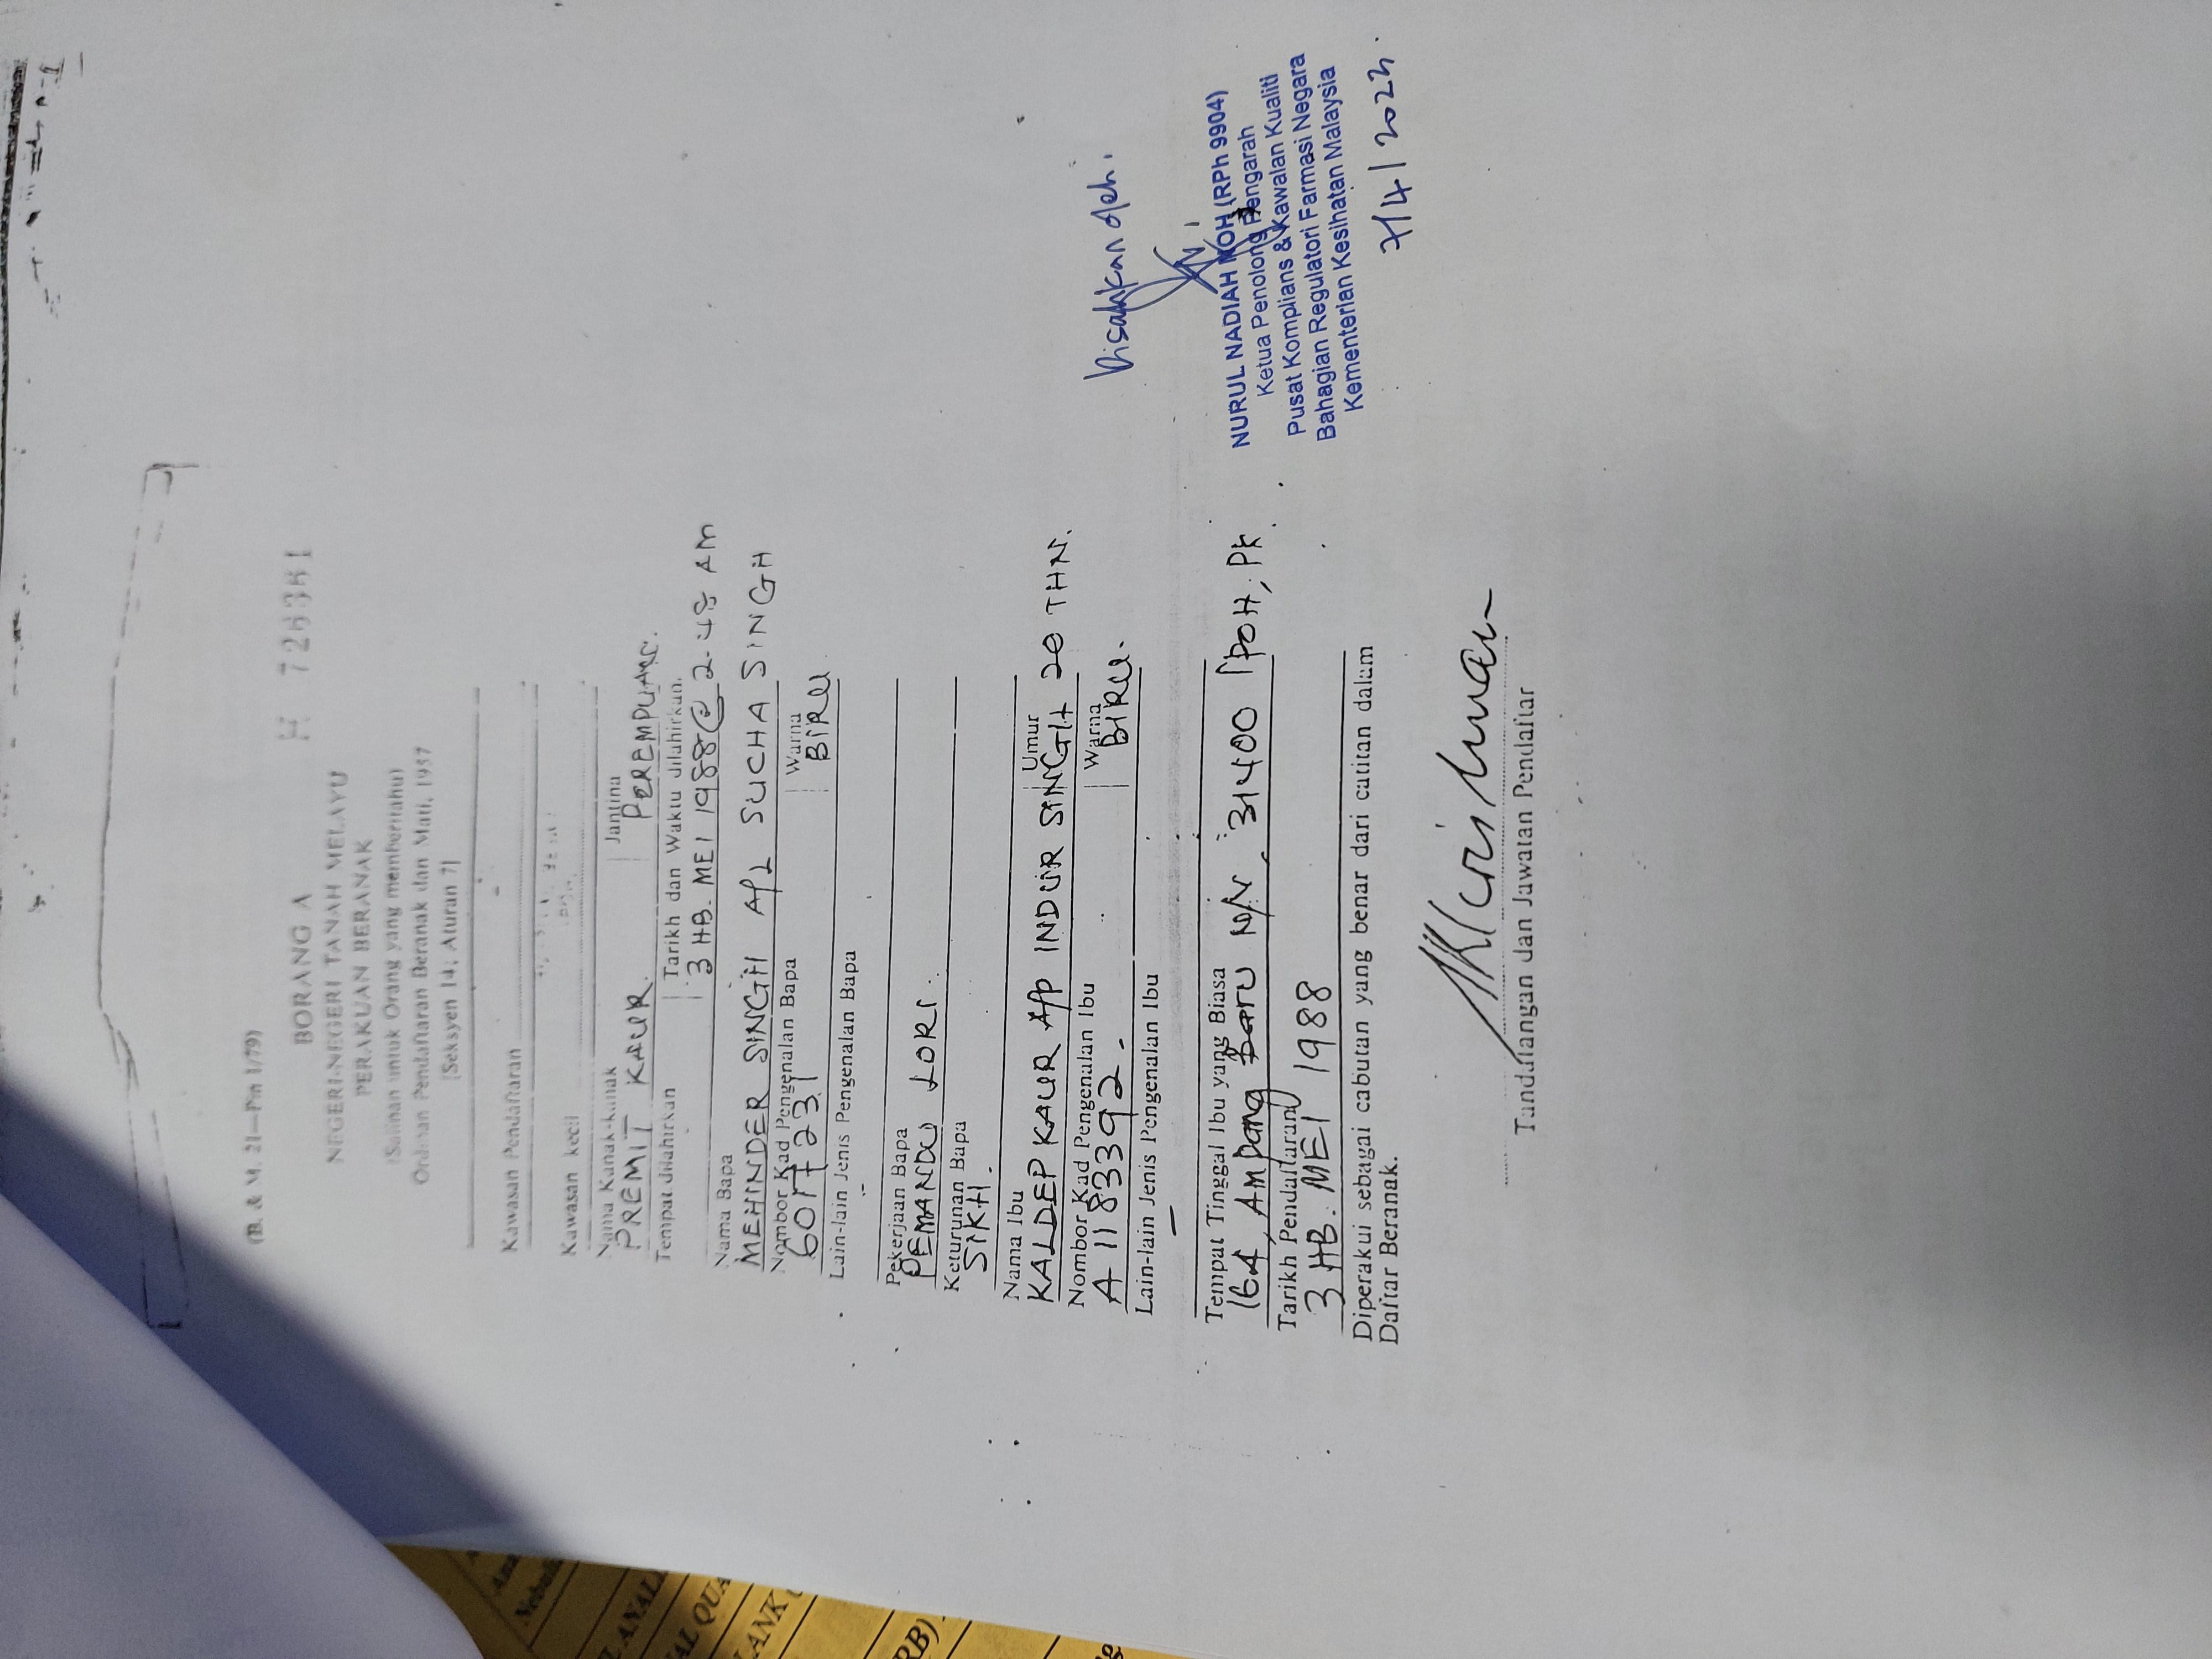 (B. & M. 21—Pin 1/79)
BORANG A
H 726361
NEGERI-NEGERI TANAH MELAYU
PERAKUAN BERANAK
(Salinan untuk Orang yang memberitahu)
Ordinan Pendaftaran Beranak dan Mati, 1957
[Seksyen 14; Aturan 7]
Kawasan Pendaftaran
Kawasan kecil
Nama Kanak-kanak Jantina
PREMIT KAUR. PEREMPUAN.
Tempat dilahirkan Tarikh dan Waktu dilahirkan.
3 HB. MEI 1988 @ 2.48 AM
Nama Bapa
MEHINDER SINGH A/L SUCHA SINGH
Nombor Kad Pengenalan Bapa Warna
6017231 BIRU
Lain-lain Jenis Pengenalan Bapa
-
Pekerjaan Bapa
PEMANDU LORI.
Keturunan Bapa
SIKH.
Nama Ibu Umur
KALDEP KAUR A/P INDUR SINGH 20 THN.
Nombor Kad Pengenalan Ibu Warna
A 1183392. BIRU.
Lain-lain Jenis Pengenalan Ibu
—
Tempat Tinggal Ibu yang Biasa
164, Ampang Baru N/V, 31400 IPOH, PK.
Tarikh Pendaftaran
3 HB. MEI 1988
Diperakui sebagai cabutan yang benar dari catitan dalam
Daftar Beranak.
Tandatangan dan Jawatan Pendaftar
Disahkan oleh.
NURUL NADIAH NOH (RPh 9904)
Ketua Penolong Pengarah
Pusat Komplians & Kawalan Kualiti
Bahagian Regulatori Farmasi Negara
Kementerian Kesihatan Malaysia
7/4/2023.